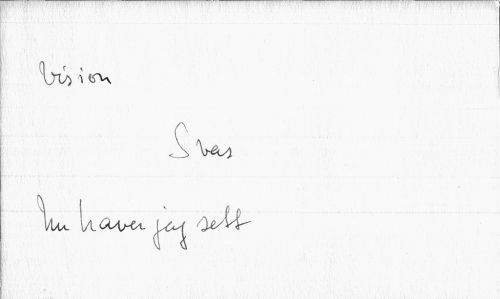 Vision
S vas
Nu haver jag sett